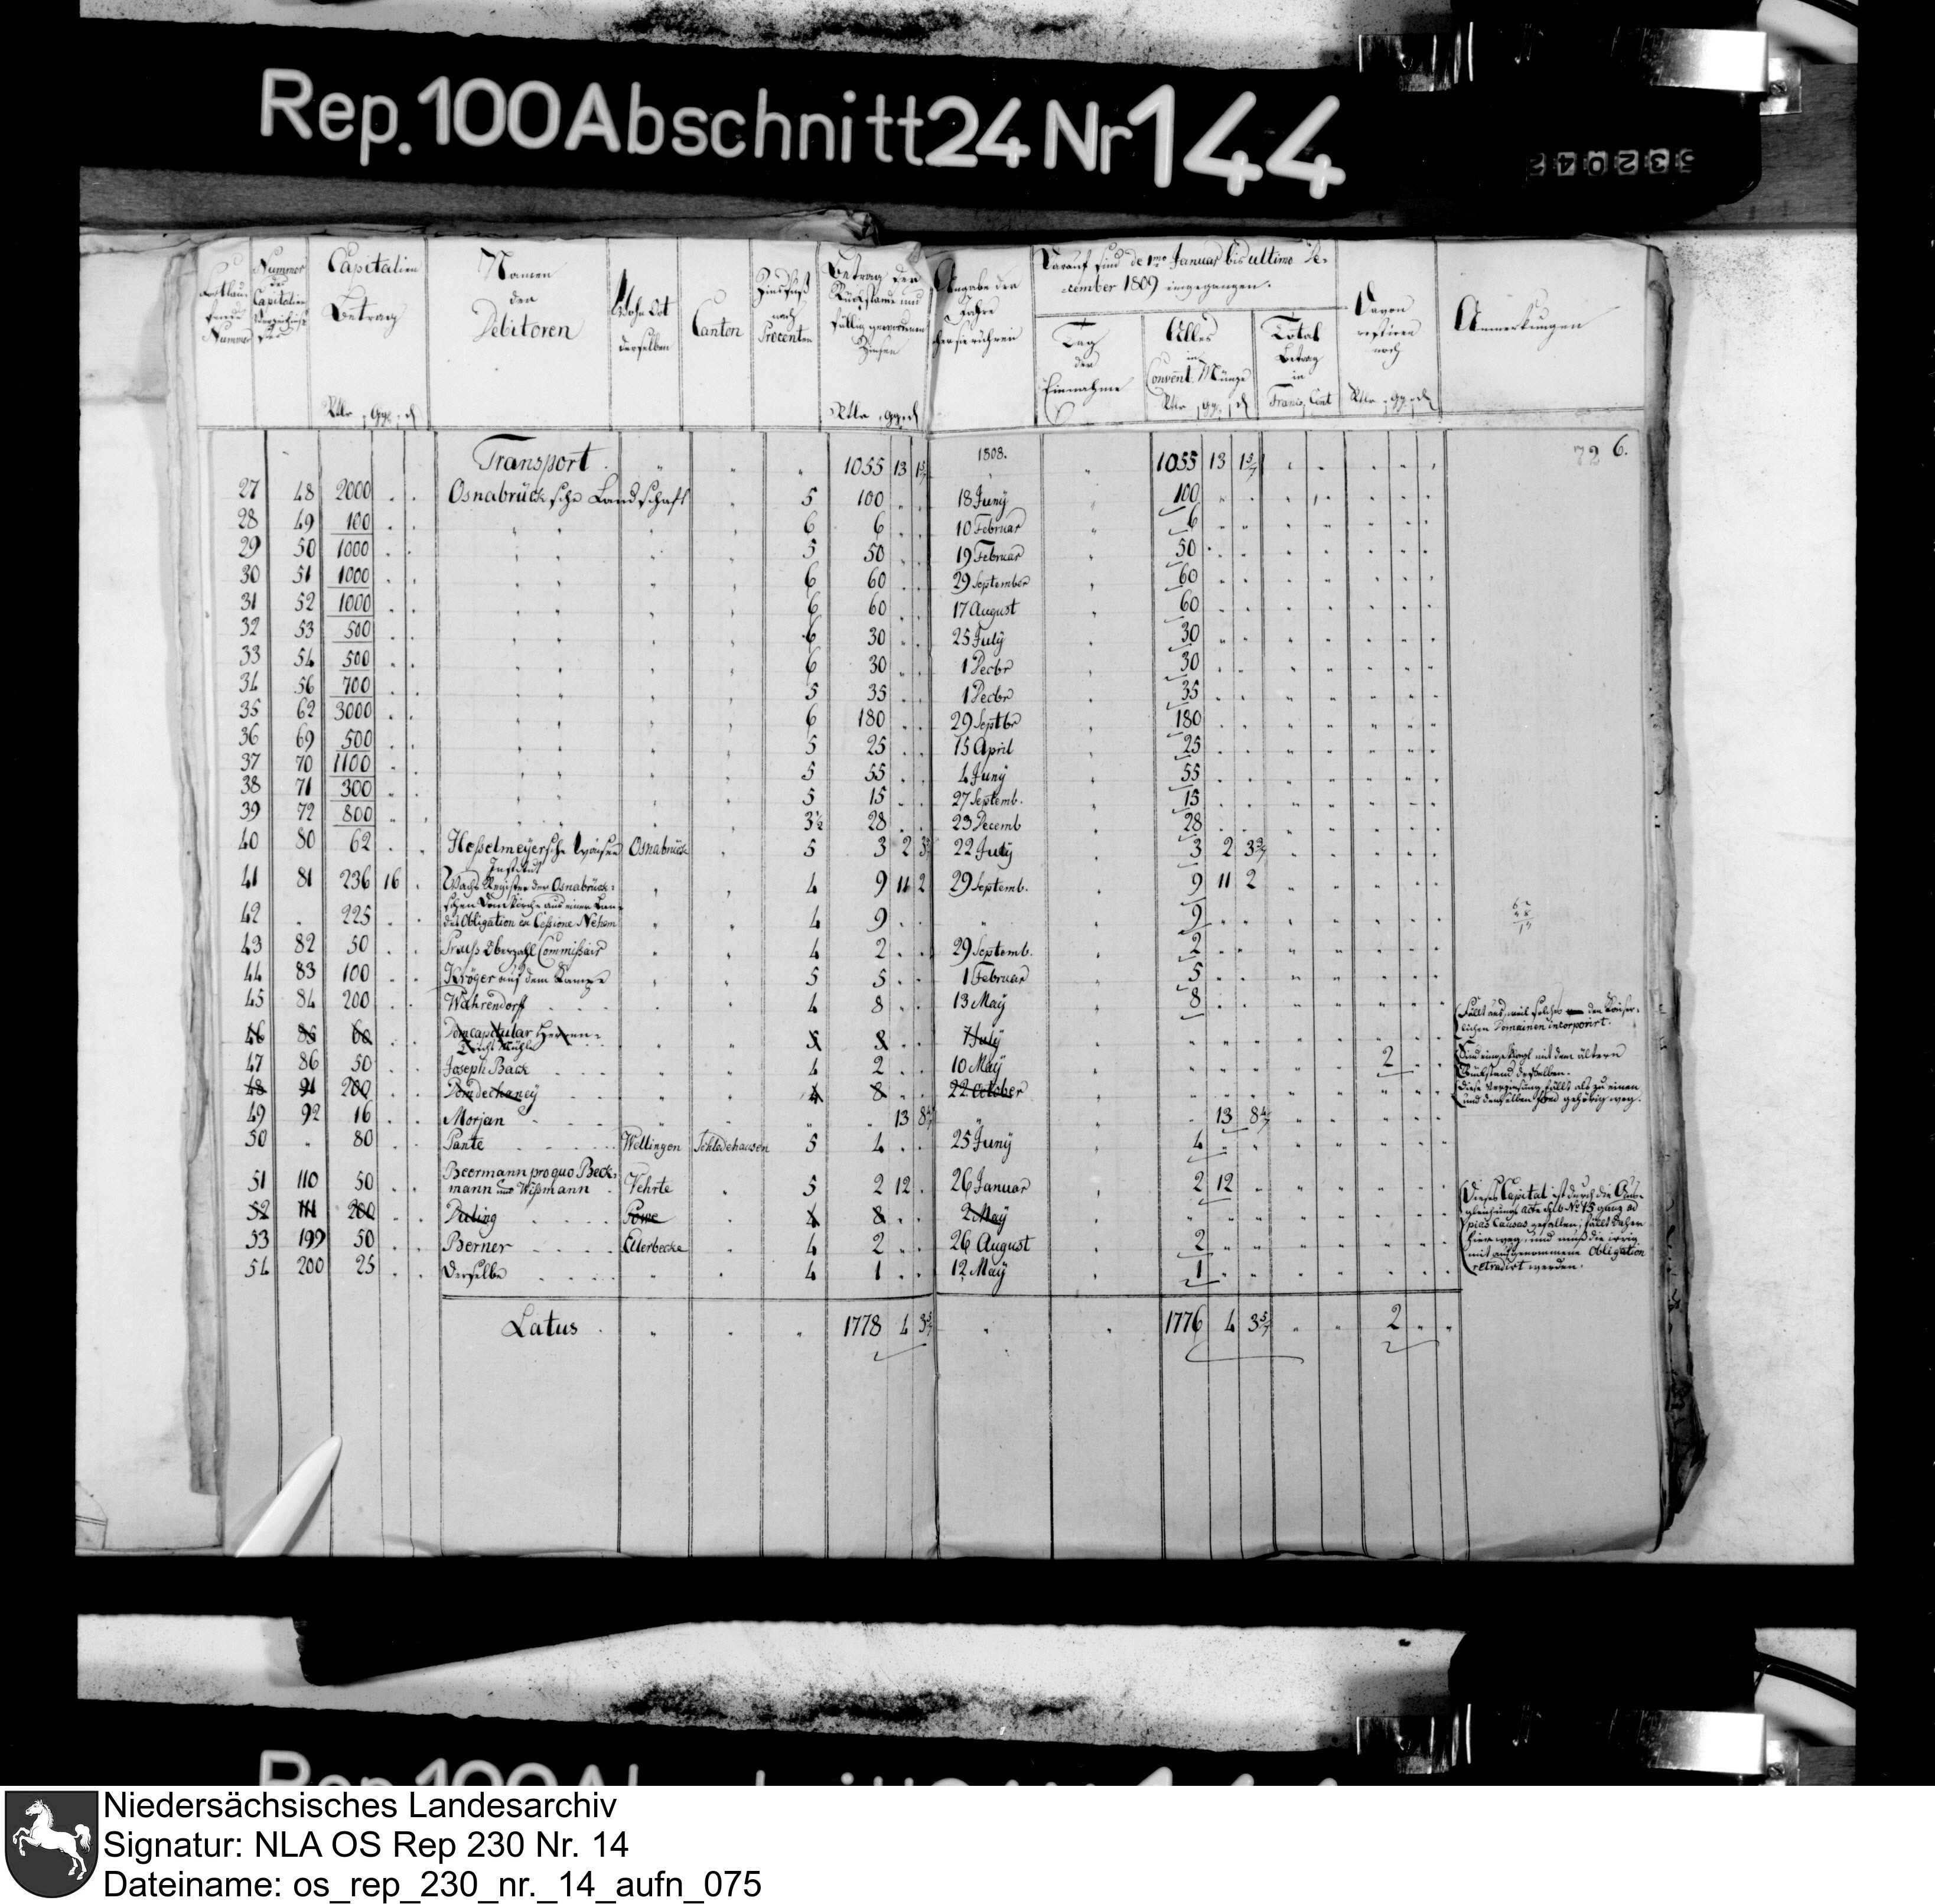 Rep. 100 Abschnitt 24 Nr 144
532042
Fortlaufende Nummer
Nummer der Capitalien
Capitalien Betrag
Rtlr ggr d
Namen der Debitoren
Wohn Ort derselben
Canton
Zinsfuß nach Procenten
Betrag der Rückstände und fällig gewordenen Zinsen
Rtlr ggr d
Angabe der Jahre
Darauf sind de 1mo Januar bis ultimo De-
cember 1809 eingegangen.
Tag der Einnahme
Alles in Convent. Münze
Rtlr ggr d
Total Betrag in Francs, Cent
Davon restiren noch
Rtlr ggr d
Anmerkungen
72 6.
Transport 1055 13 1 5/7 1808. 1055 13 1 5/7
27 48 2000 Osnabrücksche Landschaft 5 100 18 Juny 100
28 49 100 " " 6 6 10 Februar 6
29 50 1000 " " 5 50 19 Februar 50
30 51 1000 " " 6 60 29 September 60
31 52 1000 " " 6 60 17 August 60
32 53 500 " " 6 30 25 July 30
33 54 500 " " 6 30 1 Decbr 30
34 56 700 " " 5 35 1 Decbr 35
35 62 3000 " " 6 180 29 Septbr 180
36 69 500 " " 5 25 15 April 25
37 70 1100 " " 5 55 4 Juny 55
38 71 300 " " 5 15 27 Septemb. 15
39 72 800 " " 3½ 28 23 Decemb 28
40 80 62 Heßelmeyersche Waisen Institut Osnabrück 5 3 2 22 July 3 2
41 81 236 16 Wachs Register der Osnabrück-
schen Domkirche aus einer Lan- 4 9 11 2 29 Septemb. 9 11 2
42 " 225 des Obligation ex Cessione Nehem 4 9 " 9
43 82 50 Commißair 4 2 29 Septemb. 2
44 83 100 Kröger auf dem Kampe 5 5 1 Februar 5
45 84 200 Wahrendorff 4 8 13 May 8
Fällt aus, weil solches den Kaiser-
lichen Domainen incorporirt.
46 85 60 Domcapitular Herren-
Teichs Mühle 5 8 7 July
47 86 50 Joseph Back 4 2 10 May 2
Sind eingeklagt mit dem ältern
Rückstand desselben.
48 91 200 Domdechaney 4 8 22 October
und denselben gehörig weg.
49 92 16 Morjan 13 8 4/7 " 13 8 4/7
50 " 80 Pante Wellingen Schledehausen 5 4 25 Juny 4
51 110 50 Beermann pro quo Beck-
mann und Wißmann Vehrte 5 2 12 26 Januar 2 12
52 111 200 Duling Powe 4 8 2 May
Dieses Capital ist durch die Aus-
gleichungs Acte sub No 15 ganz ad
pias causas gefallen; fällt daher
hier weg und muß die irrig
mit aufgenommene Obligation
retradirt werden.
53 199 50 Berner Ellerbecke 4 2 26 August 2
54 200 25 Derselbe 4 1 12 May 1
Latus 1778 4 3 5/7 1776 4 3 5/7 2
Rep. 100 Abschnitt 24 Nr 144
Niedersächsisches Landesarchiv
Signatur: NLA OS Rep 230 Nr. 14
Dateiname: os_rep_230_nr._14_aufn_075